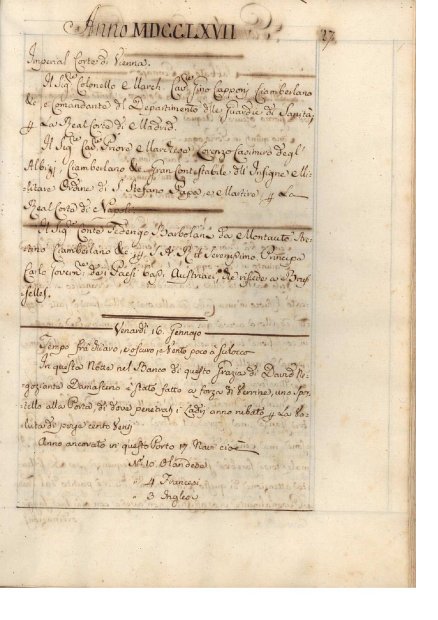 Anno MDCCLXVII
27
Imperial Corte di Vienna.
Il Sig.e Colonello e March. Cav. Gino Capponi Ciamberlano
&c e Comandante del Departimento delle Guardie di Sanità,
La Real Corte di Madrid.
Il Sig.e Cav. Priore e Marchese Lorenzo Casimiro degl'
Albizi Ciamberlano &c Gran Contestabile dell'Insigne e Mi-
litare Ordine di S. Stefano Papa, e Martire, La
Real Corte di Napoli.
Il Sig.e Conte Federigo Barbolani da Montauto
Ciamberlano &c S. A. R. il Serenissimo Principe
Carlo Governatore dei Paesi Bassi Austriaci, che risiede a Brus-
selles.
Venardì 16. Gennajo
Tempo frà chiaro, e oscuro, e Vento poco a Scilocco
In questa Notte nel Banco di questo Grazia di David
Damasceno è stato fatto a forza di Verrine, uno Spor-
tello alla Porta, di dove penetrati i Ladri anno rubato La Va-
luta di pezze cento Venti
Anno ancorato in questo Porto 17 Navi cioè
N.o 10 Olandese
" 4 Francesi
" 3 Inglesi